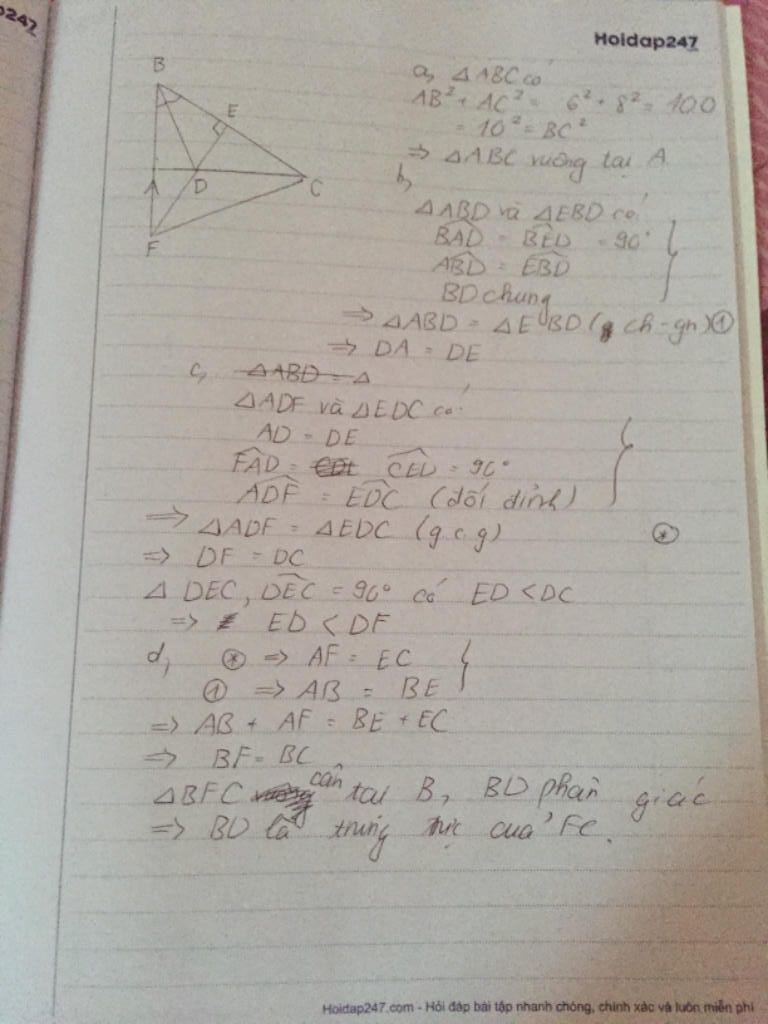 247
Hoidap247
B
E
A
D
C
F
a, △ABC có
AB² + AC² = 6² + 8² = 100
= 10² = BC²
=> △ABC vuông tại A
b,
△ABD và △EBD có
BAD = BED = 90°
ABD = EBD
BD chung
=> △ABD = △EBD (ch-gn) ①
=> DA = DE
c, △ABD = △
△ADF và △EDC có:
AD = DE
FAD = CED = 90°
ADF = EDC (đối đỉnh)
=> △ADF = △EDC (g.c.g) ⊛
=> DF = DC
△ DEC, DEC = 90° có ED < DC
=> ED < DF
d, ⊛ => AF = EC
① => AB = BE
=> AB + AF = BE + EC
=> BF = BC
△BFC cân tại B, BD phân giác
=> BD là trung trực của FC.
Hoidap247.com - Hỏi đáp bài tập nhanh chóng, chính xác và luôn miễn phí